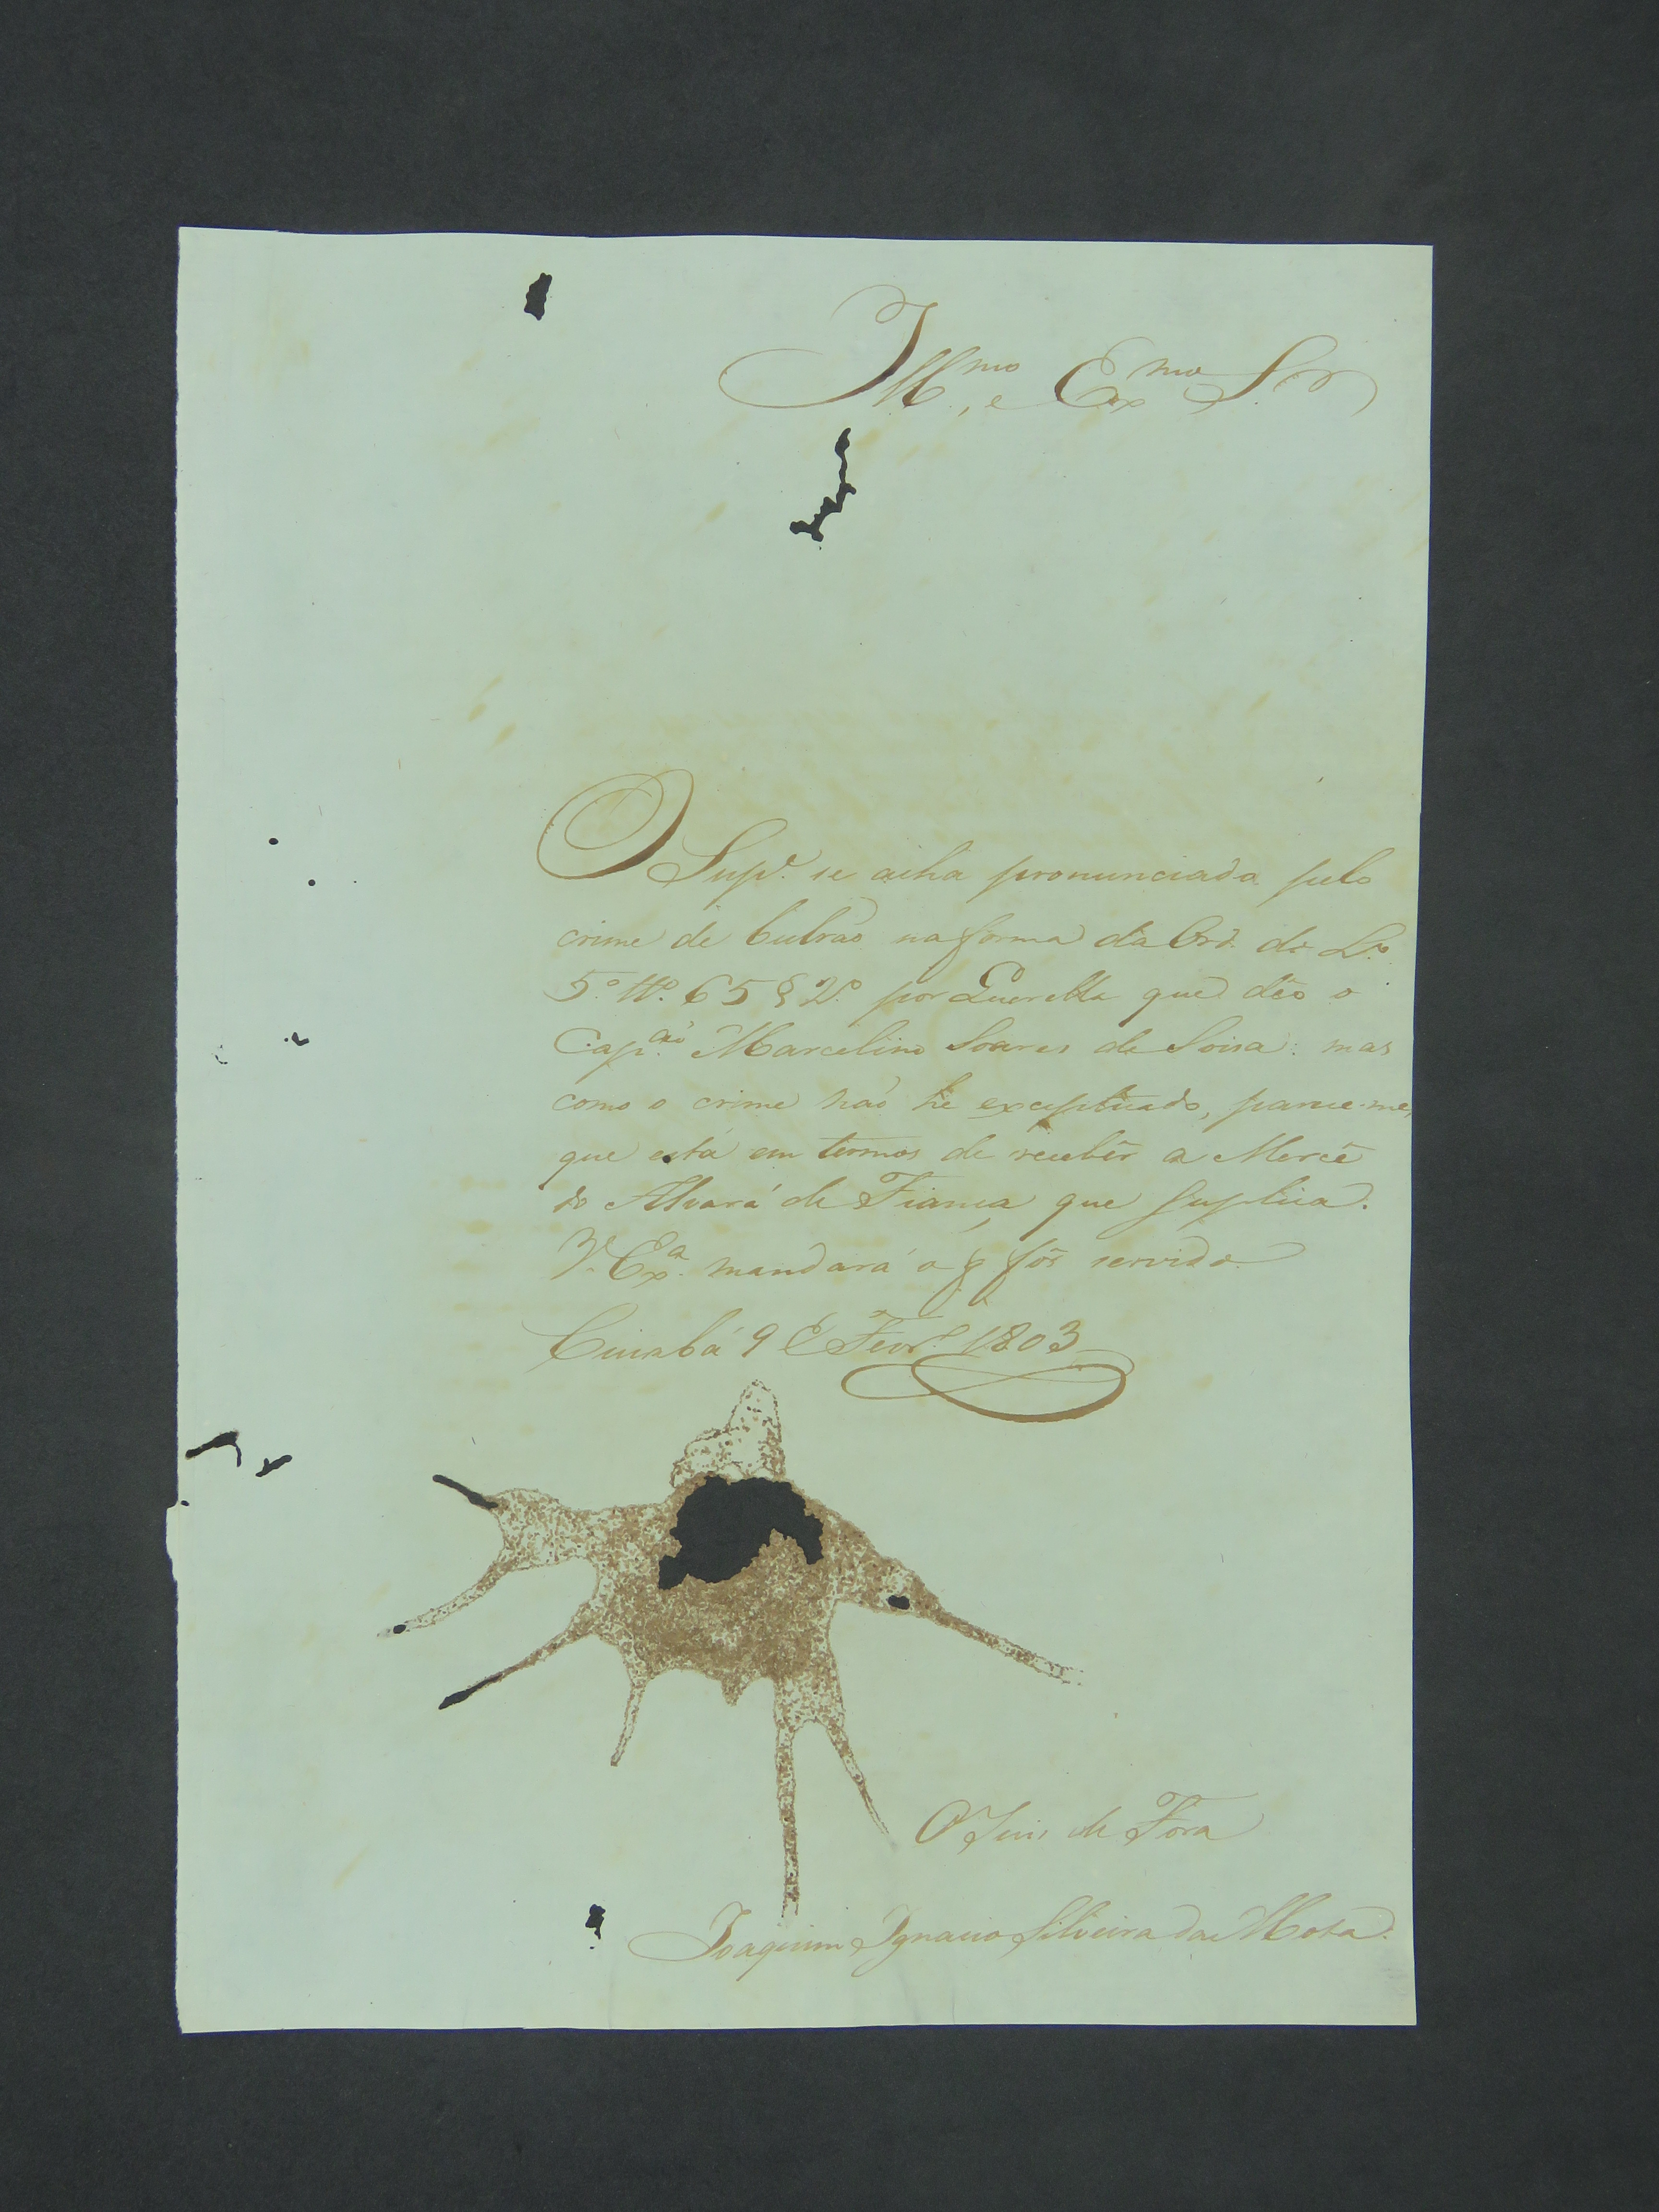 Ill.mo, e Ex.mo S.or
O Sup.e se acha pronunciada pelo
crime de bulrão na forma da Ord. do L.o
5.o tt.o 65 § 2.o por Querella que deo o
Cap.am Marcelino Soares de Soisa: mas
como o crime não he exceptuado, parece-me,
que está em termos de recebêr a Mercê
do Alvará de Fiança que suplica.
V. Ex.a mandará o q̃ fôr servido.
Cuiabá 9 de Fevr.o 1803
O Juis de Fóra
Joaquim Ignacio Silveira da Mota.